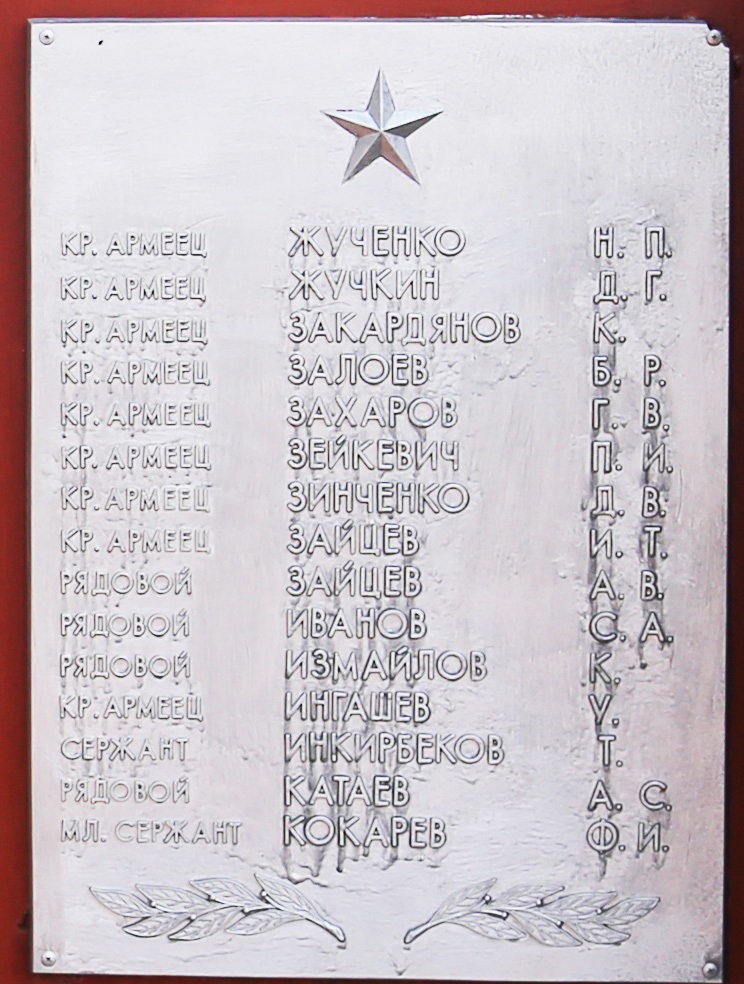 КР. АРМЕЕЦ ЖУЧЕНКО Н. П.
КР. АРМЕЕЦ ЖУЧКИН Д. Г.
КР. АРМЕЕЦ ЗАКАРДЯНОВ К.
КР. АРМЕЕЦ ЗАЛОЕВ Б. Р.
КР. АРМЕЕЦ ЗАХАРОВ Г. В.
КР. АРМЕЕЦ ЗЕЙКЕВИЧ П. И.
КР. АРМЕЕЦ ЗИНЧЕНКО Д. В.
КР. АРМЕЕЦ ЗАЙЦЕВ И. Т.
РЯДОВОЙ ЗАЙЦЕВ А. В.
РЯДОВОЙ ИВАНОВ С. А.
РЯДОВОЙ ИЗМАЙЛОВ К.
КР. АРМЕЕЦ ИНГАШЕВ У.
СЕРЖАНТ ИНКИРБЕКОВ Т.
РЯДОВОЙ КАТАЕВ А. С.
МЛ. СЕРЖАНТ КОКАРЕВ Ф. И.